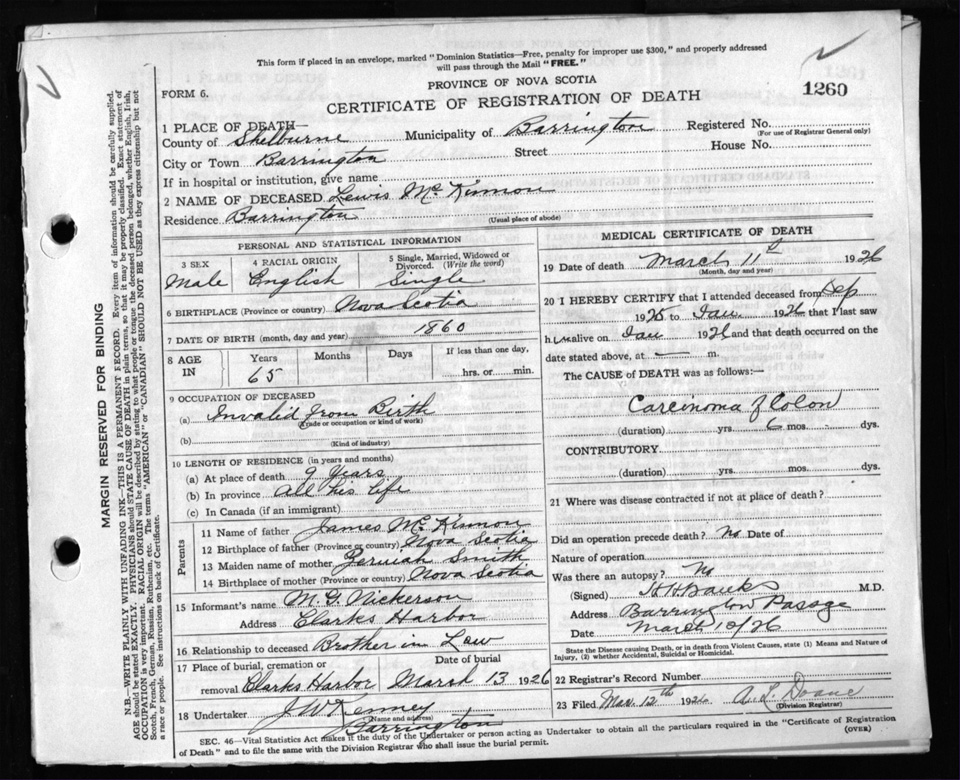 This form if placed in an envelope, marked "Dominion Statistics—Free, penalty for improper use $300," and properly addressed
will pass through the Mail "FREE."
PROVINCE OF NOVA SCOTIA
FORM 6.
CERTIFICATE OF REGISTRATION OF DEATH
1260
1 PLACE OF DEATH—
County of Shelburne Municipality of Barrington Registered No.
(For use of Registrar General only)
City or Town Barrington Street House No.
If in hospital or institution, give name
2 NAME OF DECEASED Lewis McKinnon
Residence Barrington
(Usual place of abode)
PERSONAL AND STATISTICAL INFORMATION
3 SEX 4 RACIAL ORIGIN 5 Single, Married, Widowed or
Divorced. (Write the word)
Male English Single
6 BIRTHPLACE (Province or country) Nova Scotia
7 DATE OF BIRTH (month, day and year) 1860
8 AGE IN Years Months Days If less than one day,
65 hrs. or min.
9 OCCUPATION OF DECEASED
(a) Invalid from Birth
(Trade or occupation or kind of work)
(b)
(Kind of industry)
10 LENGTH OF RESIDENCE (in years and months)
(a) At place of death 9 Years
(b) In province All his life
(c) In Canada (if an immigrant)
Parents
11 Name of father James McKinnon
12 Birthplace of father (Province or country) Nova Scotia
13 Maiden name of mother Smith
14 Birthplace of mother (Province or country) Nova Scotia
15 Informant's name M. G. Nickerson
Address Clarks Harbor
16 Relationship to deceased Brother in Law
17 Place of burial, cremation or Date of burial
removal Clarks Harbor March 13 1926
18 Undertaker J W Kenney
(Name and address)
Barrington
MEDICAL CERTIFICATE OF DEATH
19 Date of death March 11th 1926
(Month, day and year)
20 I HEREBY CERTIFY that I attended deceased from Sep
1925 to Jan 1926 that I last saw
him alive on Jan 1926 and that death occurred on the
date stated above, at — m.
The CAUSE of DEATH was as follows:—
Carcinoma of Colon
(duration) yrs. 6 mos. dys.
CONTRIBUTORY
(duration) yrs. mos. dys.
21 Where was disease contracted if not at place of death?
Did an operation precede death? No Date of
Nature of operation
Was there an autopsy? No
(Signed) H H Banks M.D.
Address Barrington Passage
Date March 10/26
State the Disease causing Death, or in death from Violent Causes, state (1) Means and Nature of
Injury, (2) whether Accidental, Suicidal or Homicidal.
22 Registrar's Record Number
23 Filed Mar. 12th 1926 A. L. Doane
(Division Registrar)
SEC. 46—Vital Statistics Act makes it the duty of the Undertaker or person acting as Undertaker to obtain all the particulars required in the "Certificate of Registration
of Death" and to file the same with the Division Registrar who shall issue the burial permit. (OVER)
MARGIN RESERVED FOR BINDING
N.B.—WRITE PLAINLY WITH UNFADING INK—THIS IS A PERMANENT RECORD. Every item of information should be carefully supplied.
AGE should be stated EXACTLY. PHYSICIANS should STATE CAUSE OF DEATH in plain terms, so that it may be properly classified. Exact statement of
OCCUPATION is very important. RACIAL ORIGIN will be described by stating to what people or tongue the deceased person belonged, whether English, Irish,
Scotch, French, German, Russian, Ruthenian, etc. The terms "AMERICAN" or "CANADIAN" SHOULD NOT BE USED as they express citizenship but not
a race or people. See instructions on back of Certificate.